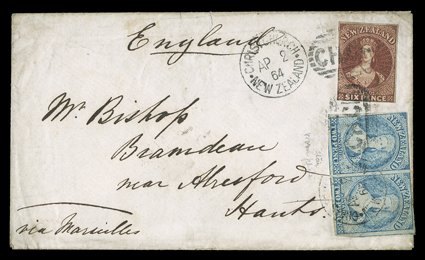 England
CHRISTCHURCH
AP 2
64
NEW ZEALAND
NEW ZEALAND
CH
SIX PENCE
Mr. Bishop
Bramdean
near Alresford
Hants.
via Marseilles
NEW ZEALAND
NEW ZEALAND